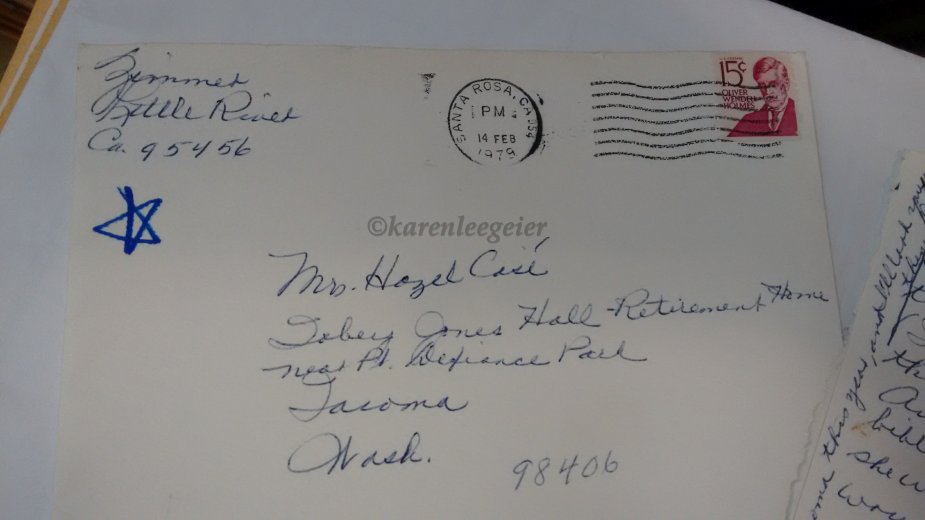 Zimmer
Little River
Ca. 95456
SANTA ROSA, CA 954
PM
14 FEB
1979
15¢
OLIVER
WENDELL
HOLMES
©karenleegeier
Mrs. Hazel Casé
Tobey Jones Hall - Retirement Home
near Pt. Defiance Park
Tacoma
Wash.
98406
this year, and
she w